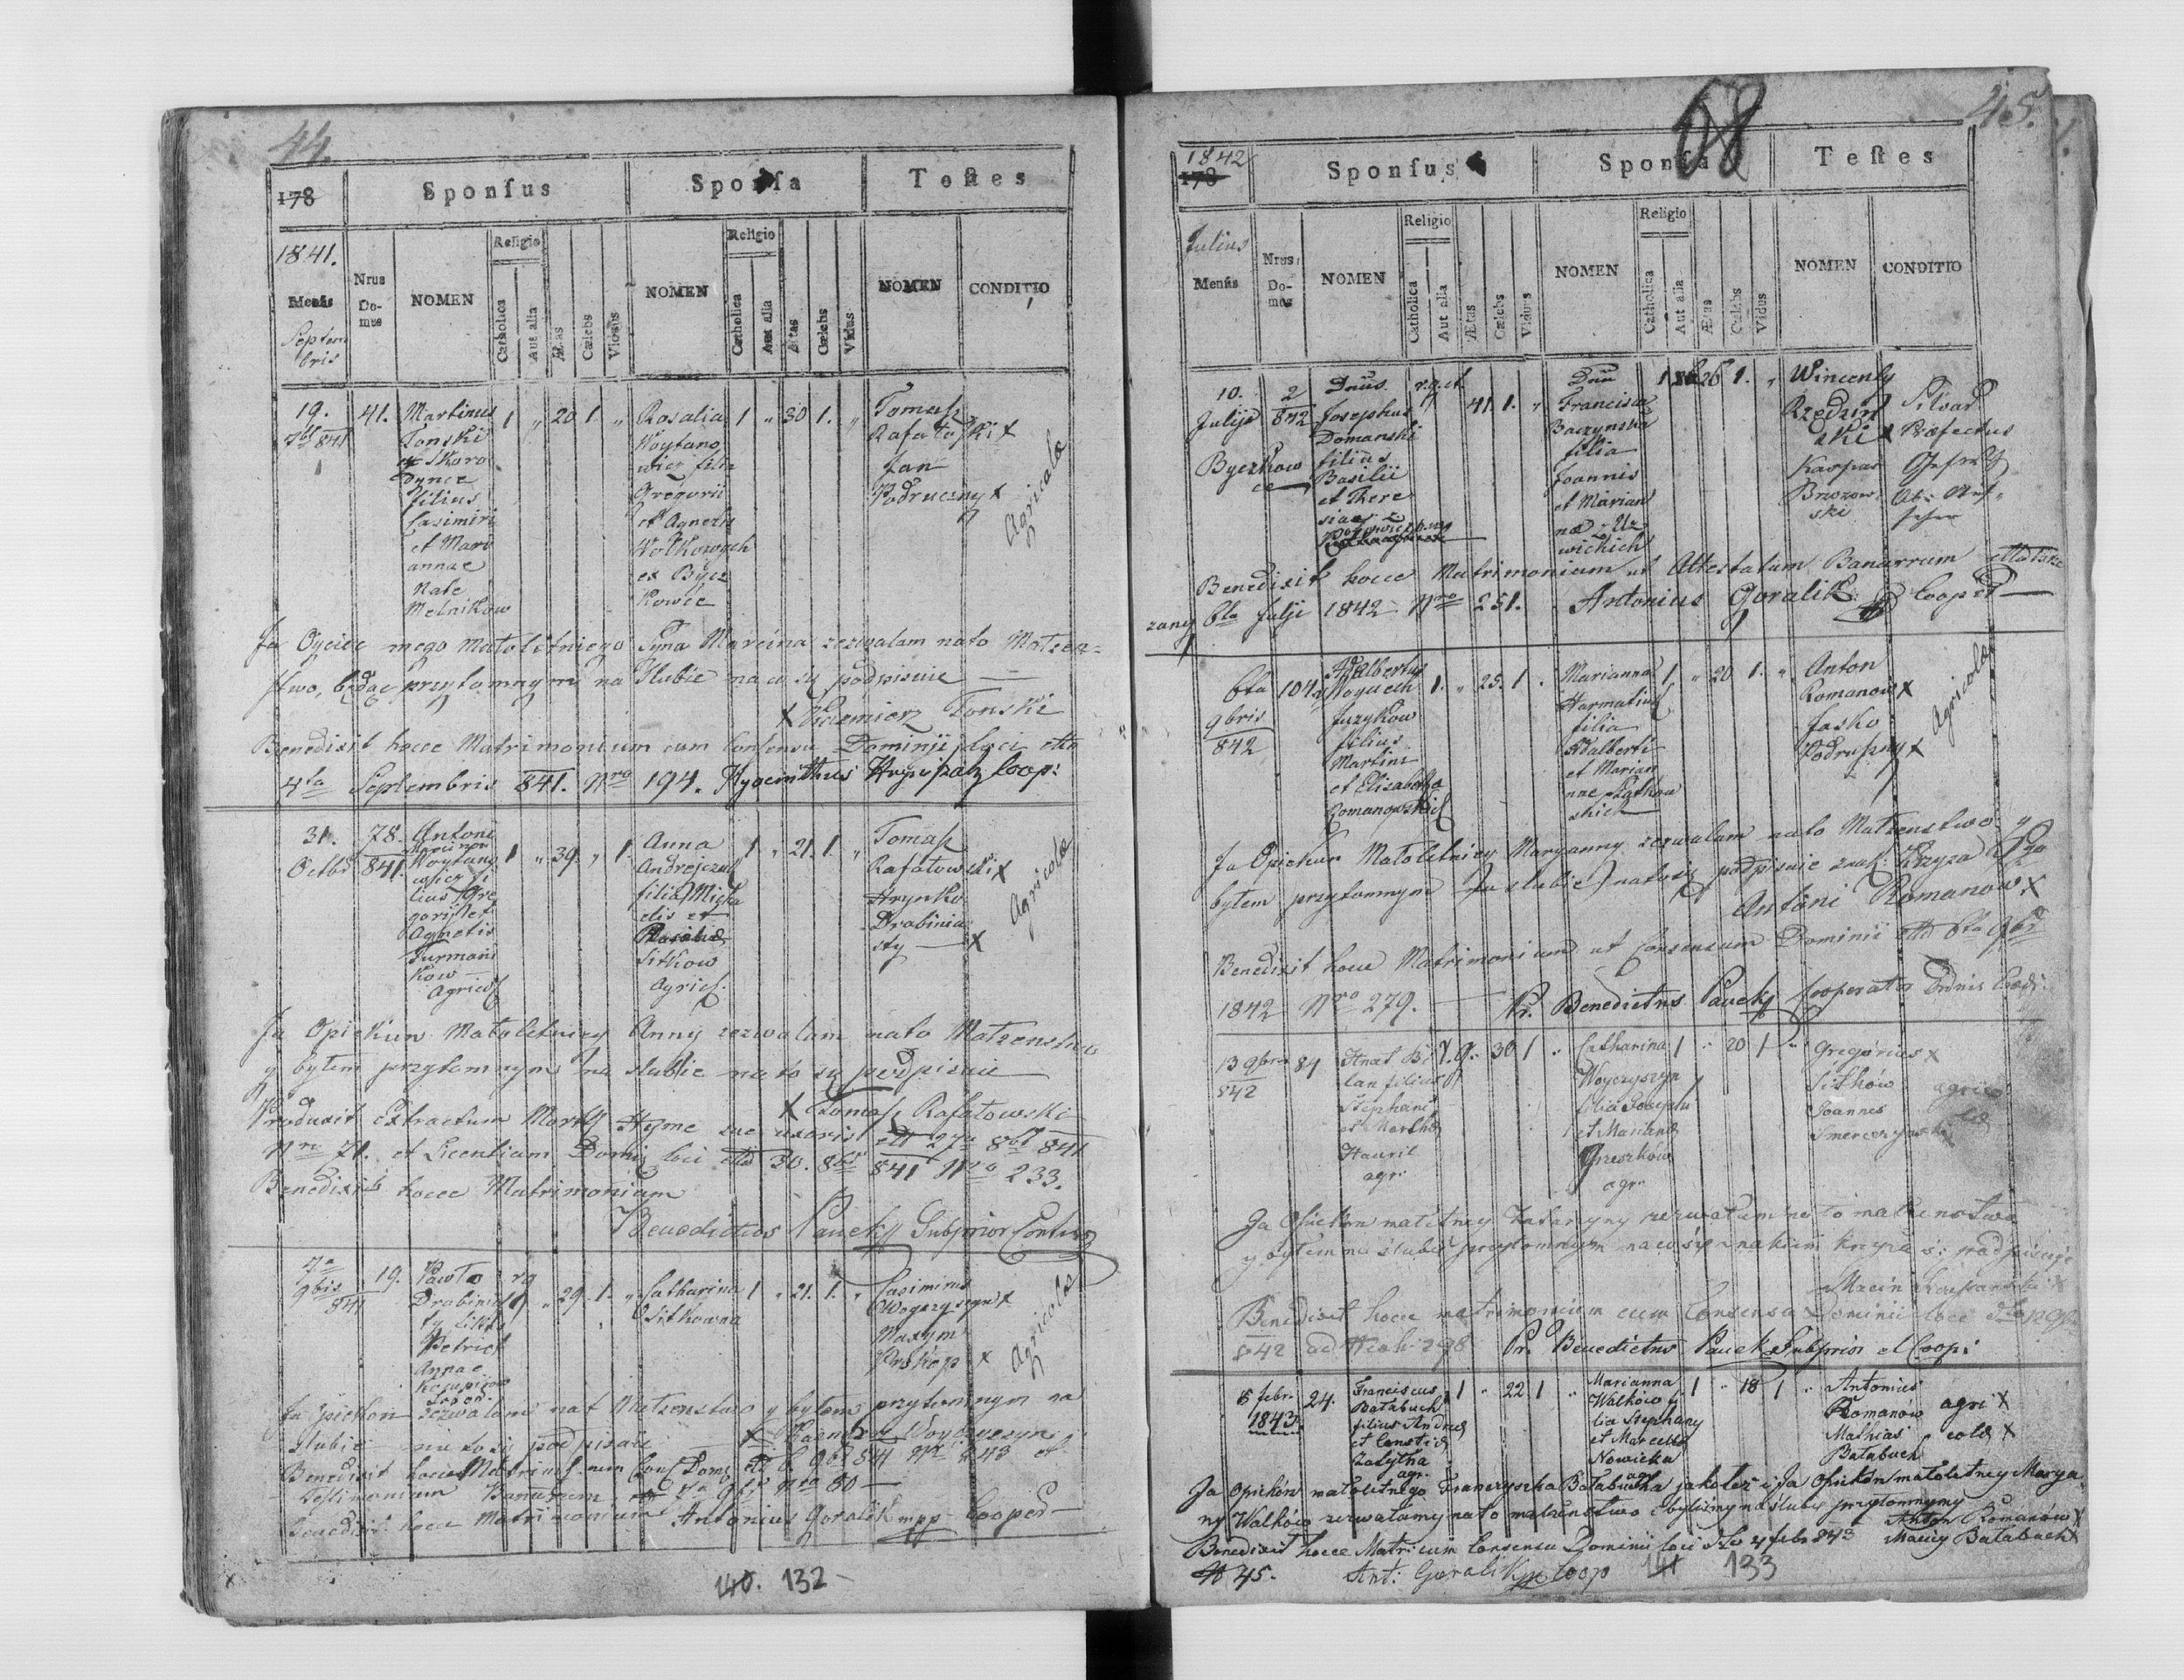 44.
178
Sponſus
Sponſa
Teſtes
1841.
Menſis
Septem
bris
Nrus
Do-
mus
NOMEN
Religio
Catholica
Aut alia
Ætas
Cælebs
Viduus
NOMEN
Religio
Catholica
Aut alia
Ætas
Cælebs
Vidua
NOMEN
CONDITIO
19.
7br 841
41.
Martinus
Tonski
filius
Casimiri
et Mari
annae
Nate
Melnikow
1 " 20 1. "
Rosalia
Woytano
wicz filia
Gregorii
et Agnetis
Wołkowych
ex Bycz
kowce
1 " 30 1. "
Tomasz
Rafałoski x
Jan
Podruczny x
Agricolae
Ja Oyciec mego małolitniego Syna Marcina zezwalam nato Małżeń=
stwo, będąc przytomnym na Slubie na co się podpisuie —
x Kazimierz Tonski
Benedixit hocce Matrimonium cum Consensu Dominii loci dtto
4ta Septembris 841. Nro 194. Hyacinthus Coop:
31.
Octbr
78.
841.
Antoni
Woytano
wicz fi
lius Gre
gorii et
Agnetis
Furmani
kow —
Agricol
1 " 39. " 1.
Anna
Andrejczuk
filia Micha
elis et
Rosaliae
Sitkow
Agricol.
1 " 21. 1. "
Tomasz
Rafałowski x
Hrynko
Drabinia
sty — x
Agricolae
Ja Opiekun Małoletniey Anny zezwalam nato Małżenstwo
y byłem przytomnym na slubie na to się podpisuie
x Tomasz Rafałowski
Produxit Extractum Mortis suae uxoris dtto 27a 8br 841
Nro 71. et Licentiam Domii loci dtto 30. 8br 841 Nro 233.
Benedixit hocce Matrimonium
Benedictus Pauck Subprior
7a
9bris
841
19.
Pawło
Drabinias
ty filius
Petri et
Annae
rg " 29. 1. "
Catharina
Sitkowna
1 " 21. 1. "
Casimirus
Woyczyszyn x
Maxym
Prokop x
Agricolae
Ja Opiekun zezwalam nato Małżenstwo y byłem przytomnym na
slubie na to się podpisuie x Woyczyszyn
Benedixit hocce Matrim. cum Cons Domii dtto 6. 9br 841 Nro 243 et
Testimonium Bannorum 7a 9br Nro 80 —
Benedixit hocce Matrimonium Antonius Goralik mpp Cooper —
140. 132
45.
58
1842
178
Sponſus
Sponſa
Teſtes
Julius
Menſis
Nrus
Do-
mus
NOMEN
Religio
Catholica
Aut alia
Ætas
Cælebs
Viduus
NOMEN
Religio
Catholica
Aut alia
Ætas
Cælebs
Vidua
NOMEN
CONDITIO
10.
Julij
Byczkow
ce
2
842
Dnus
Josephus
Domanski
filius
Basilii
et There
siae z
r.g.
41. 1. "
Dna
Francisca
Baczynska
filia
Joannis
et Marian
nae z Uz
wickich
1 26 1. "
Wincenty
Rzędzin
ski x
Kaspar
Brzozow
ski
Silvar
Præfectus
Benedixit hocce Matrimonium ut Attestatum Banorum
6ta Julji 1842 Nro 251. Antonius Goralik Cooper —
6ta
9bris
842
104
Adalbertus
Woyciech
Juzykow
filius
Martini
et Elisabetha
Romanowskich
1. " 25. 1 "
Marianna
Harmatiuk
filia
Adalberti
et Marian
nae
1. " 20 1. "
Anton
Romanow x
Jasko
Podruszny x
Agricolae
Ja Opiekun Małoletniey Maryanny zezwalam nato Małżenstwo y
byłem przytomnym na slubie nato się podpisuie znak Krzyża S go
Antoni Romanow x
Benedixit hocce Matrimonium ut Consensum Dominii dtto 6ta 9br
1842 Nro 279. — Pr. Benedictus Pauck Cooperator
13 9bris
842
84
Ihnat Bi
lan filius
Stephani
et Marthae
Hauril
agr.
r.g. " 30 1 "
Catharina
Woyczyszyn
filia Josephi
et Mariannae
Greszków
agr.
1 " 20 1 "
Gregorius x
Sitków
Joannes
agrico
lae
Ja Opiekun małetney Katarzyny zezwalam na to małżenstwo
y byłem na ślubie przytomnym na co się znakiem krzyża ś: podpisuję
Benedixit hocce matrimonium cum Consensu Dominii loci dtto 12 9br
842 ad Nrum 298 Pr. Benedictus Pauck Subprior et Coop:
5 febr.
1843.
24.
Franciscus
Bałabuch
filius Andreae
et Constiae
Załytka
agr.
1 " 22 1 "
Marianna
Walków fi
lia Stephany
et Marcella
Nowicka
agr
1 " 18 1 "
Antonius
Romanów
Mathias
Bałabuch
agri x
colae x
Ja Opiekón małoletnego Franczyszka Bałabucha jakoteż i Ja Opiekón małoletney Marya
ny Walków zezwalamy na to małżenstwo i byliźmy na ślubie przytomnymy
Anton Romanów x
Benedixit hocce Matr: cum Consensu Dominii loci dto 4 febr 843 Maciey Bałabuch x
N 45. Ant: Goralik Coop
141 133